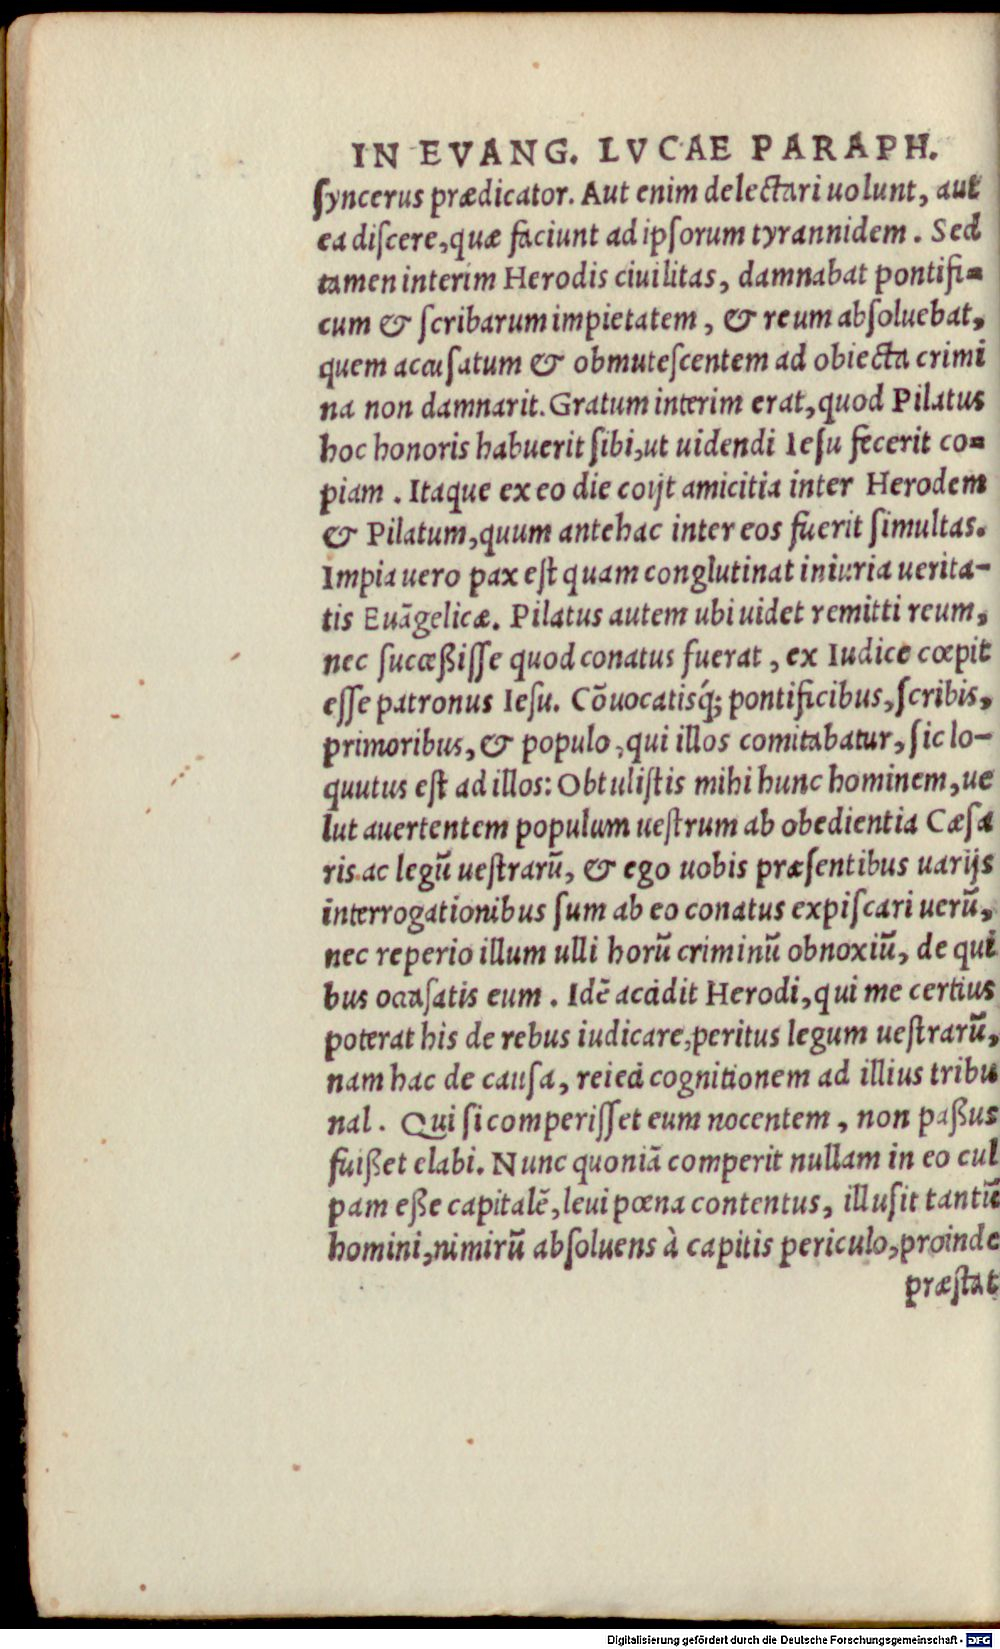 IN EVANG. LVCAE PARAPH.
ſyncerus prædicator. Aut enim delectari uolunt, aut
ea diſcere, quæ faciunt ad ipſorum tyrannidem. Sed
tamen interim Herodis ciuilitas, damnabat pontifi=
cum & ſcribarum impietatem, & reum abſoluebat,
quem accuſatum & obmuteſcentem ad obiecta crimi
na non damnarit. Gratum interim erat, quod Pilatus
hoc honoris habuerit ſibi, ut uidendi Ieſu fecerit co=
piam. Itaque ex eo die coijt amicitia inter Herodem
& Pilatum, quum antehac inter eos fuerit ſimultas.
Impia uero pax eſt quam conglutinat iniuria uerita-
tis Euāgelicæ. Pilatus autem ubi uidet remitti reum,
nec ſucceßiſſe quod conatus fuerat, ex Iudice cœpit
eſſe patronus Ieſu. Cōuocatisq́; pontificibus, ſcribis,
primoribus, & populo, qui illos comitabatur, ſic lo-
quutus eſt ad illos: Obtuliſtis mihi hunc hominem, ue
lut auertentem populum ueſtrum ab obedientia Cæſa
ris ac legū ueſtrarū, & ego uobis præſentibus uarijs
interrogationibus ſum ab eo conatus expiſcari uerū,
nec reperio illum ulli horū criminū obnoxiū, de qui
bus accuſatis eum. Idē accidit Herodi, qui me certius
poterat his de rebus iudicare, peritus legum ueſtrarū,
nam hac de cauſa, reieci cognitionem ad illius tribu
nal. Qui ſi comperiſſet eum nocentem, non paßus
fuißet elabi. Nunc quoniā comperit nullam in eo cul
pam eße capitalē, leui pœna contentus, illuſit tantū
homini, nimirū abſoluens à capitis periculo, proinde
præſtat
Digitalisierung gefördert durch die Deutsche Forschungsgemeinschaft - DFG